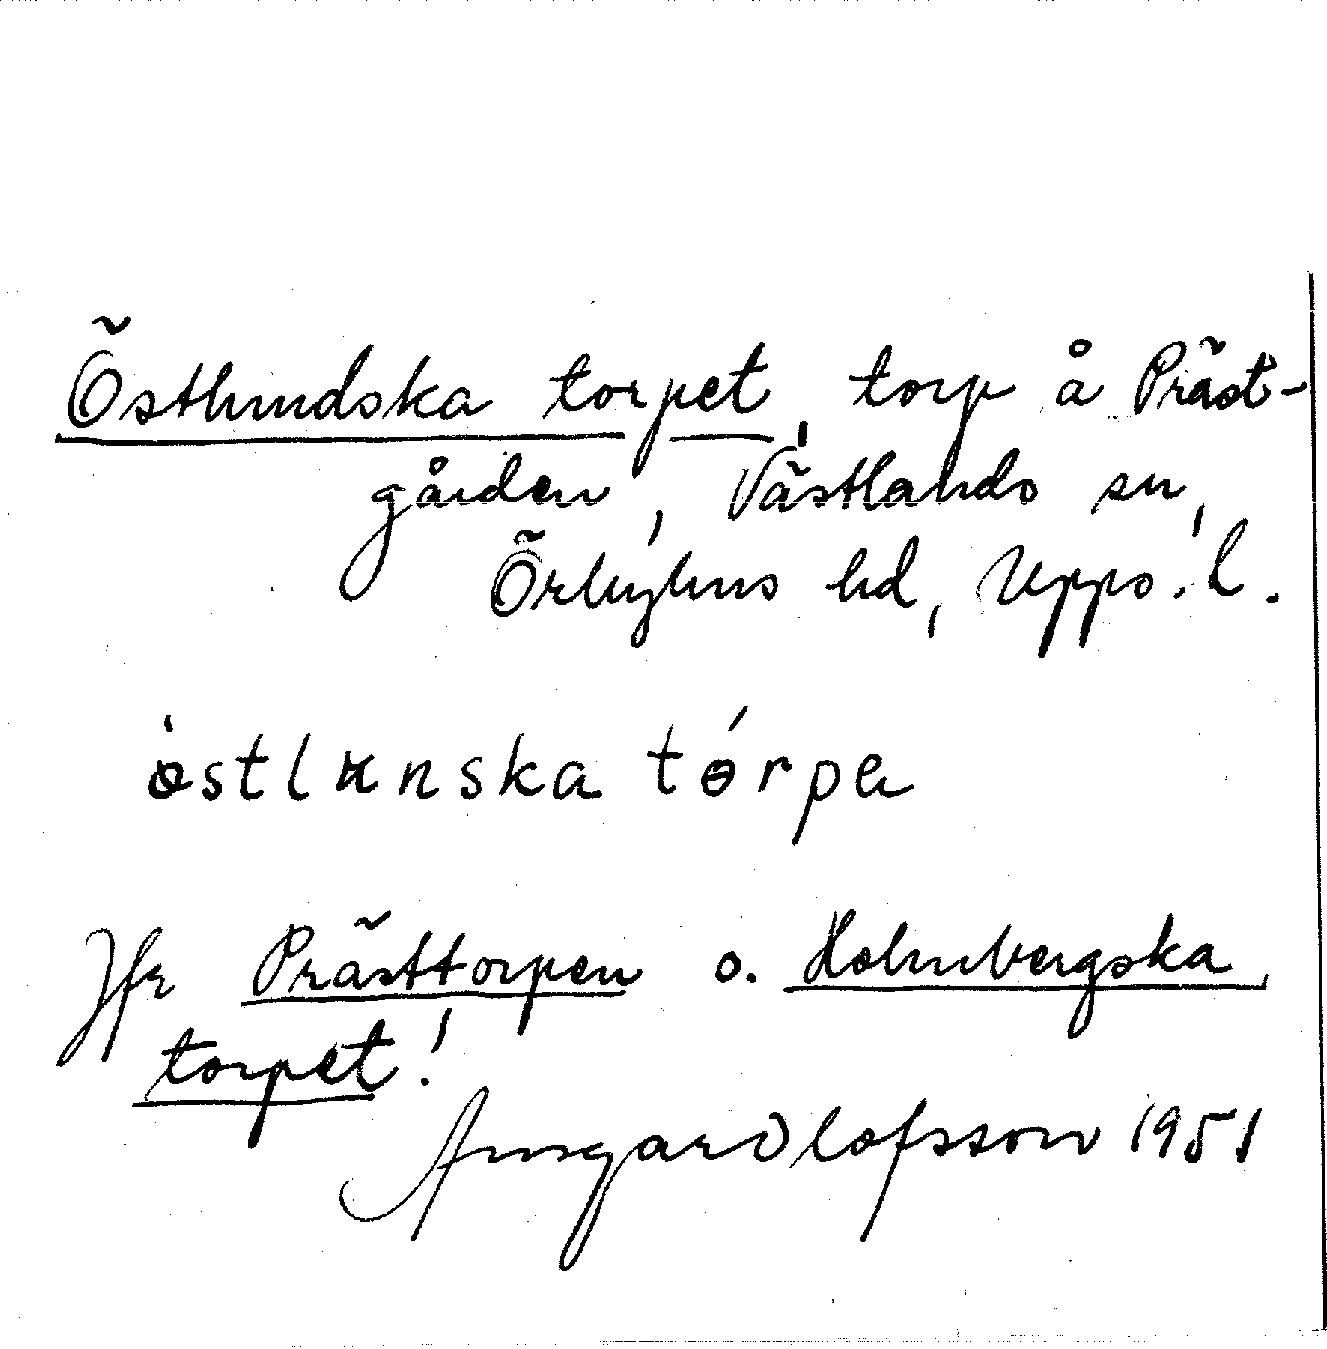 Östlundska torpet, torp å Präst-
gården, Västlands sn,
Örbyhus hd, Upps. l.
östlunska tórpa
Jfr Prästtorpen o. Holmbergska
torpet!
Ansgar Olofsson 1951